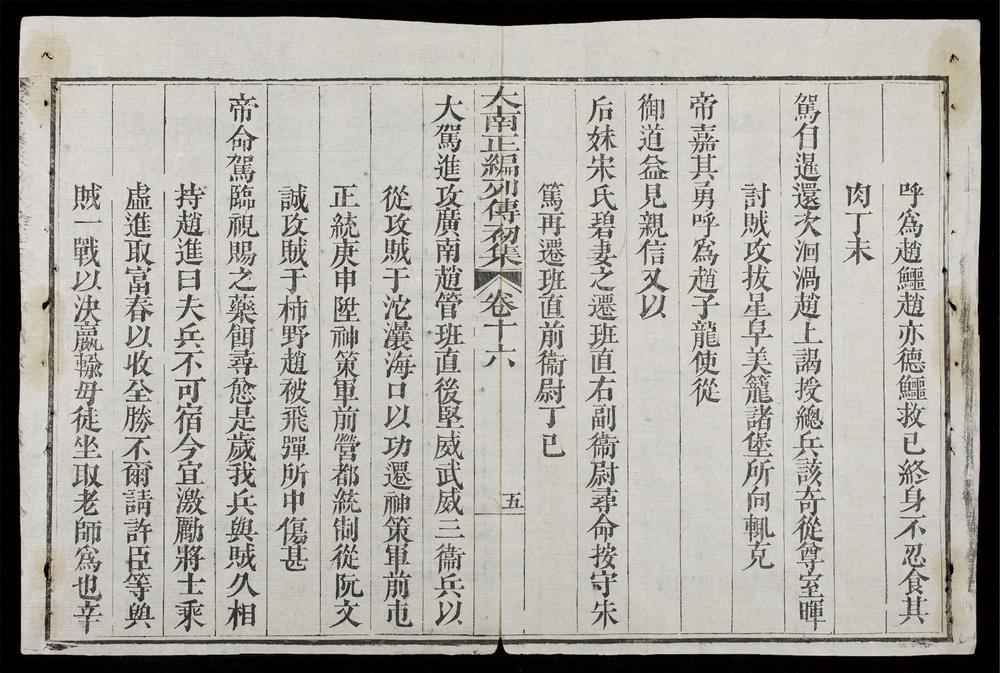 呼爲趙鱷趙亦德鱷救已終身不忍食其
肉丁未
駕自暹還次洄渦趙上謁授總兵該奇從尊室暉
討賊攻拔星阜美籠諸堡所向輒克
帝嘉其勇呼爲趙子龍使從
御道益見親信又以
后妹宋氏碧妻之遷班直右副衞尉尋命按守朱
篤再遷班直前衞尉丁巳
大南正編列傳初集
卷十六
五
大駕進攻廣南趙管班直後堅威武威三衞兵以
從攻賊于沱灢海口以功遷神策軍前屯
正統庚申陞神策軍前營都統制從阮文
誠攻賊于柿野趙被飛彈所中傷甚
帝命駕臨視賜之藥餌尋愈是歲我兵與賊久相
持趙進曰夫兵不可宿今宜激勵將士乘
虛進取富春以收全勝不爾請許臣等與
賊一戰以決嬴輸毋徒坐取老師爲也辛